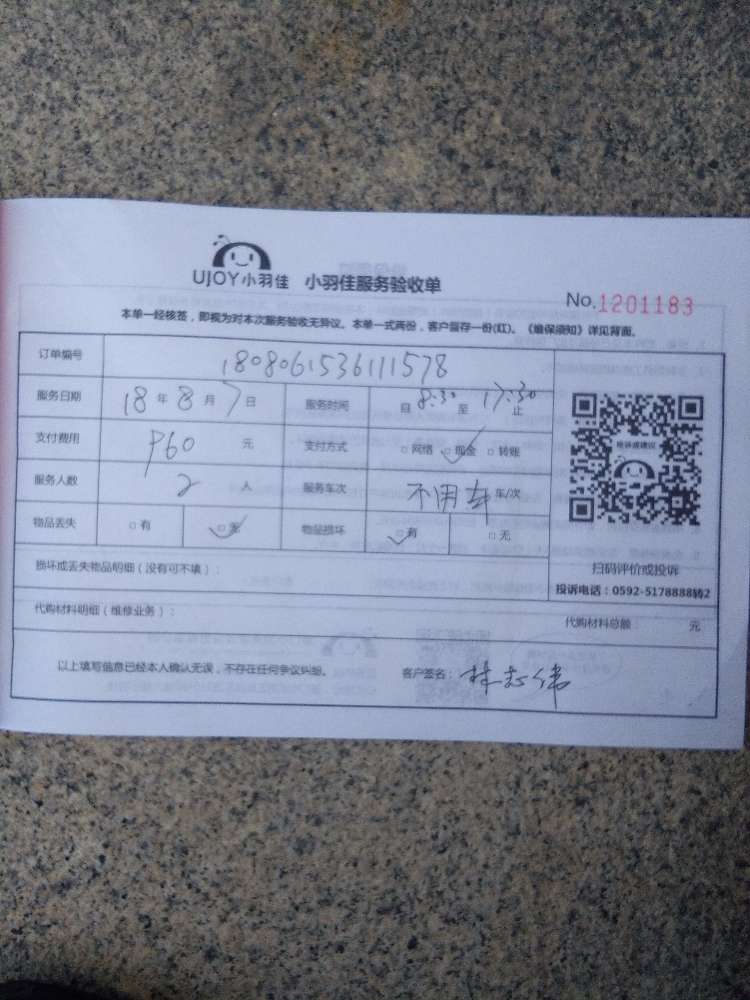 UJOY小羽佳 小羽佳服务验收单
No.1201183
本单一经核签，即视为对本次服务验收无异议。本单一式两份，客户留存一份(红)。《维保须知》详见背面。
订单编号 1808061536111578
服务日期 18年8月7日 服务时间 自8:30至17:30止
支付费用 960元 支付方式 □网络 □现金 □转账
服务人数 2人 服务车次 不用车车/次
物品丢失 □有 □无 物品损坏 □有 □无
投诉或建议
扫码评价或投诉
损坏或丢失物品明细（没有可不填）：
投诉电话：0592-5178888转2
代购材料明细（维修业务）： 代购材料总额： 元
以上填写信息已经本人确认无误，不存在任何争议纠纷。 客户签名：林志伟